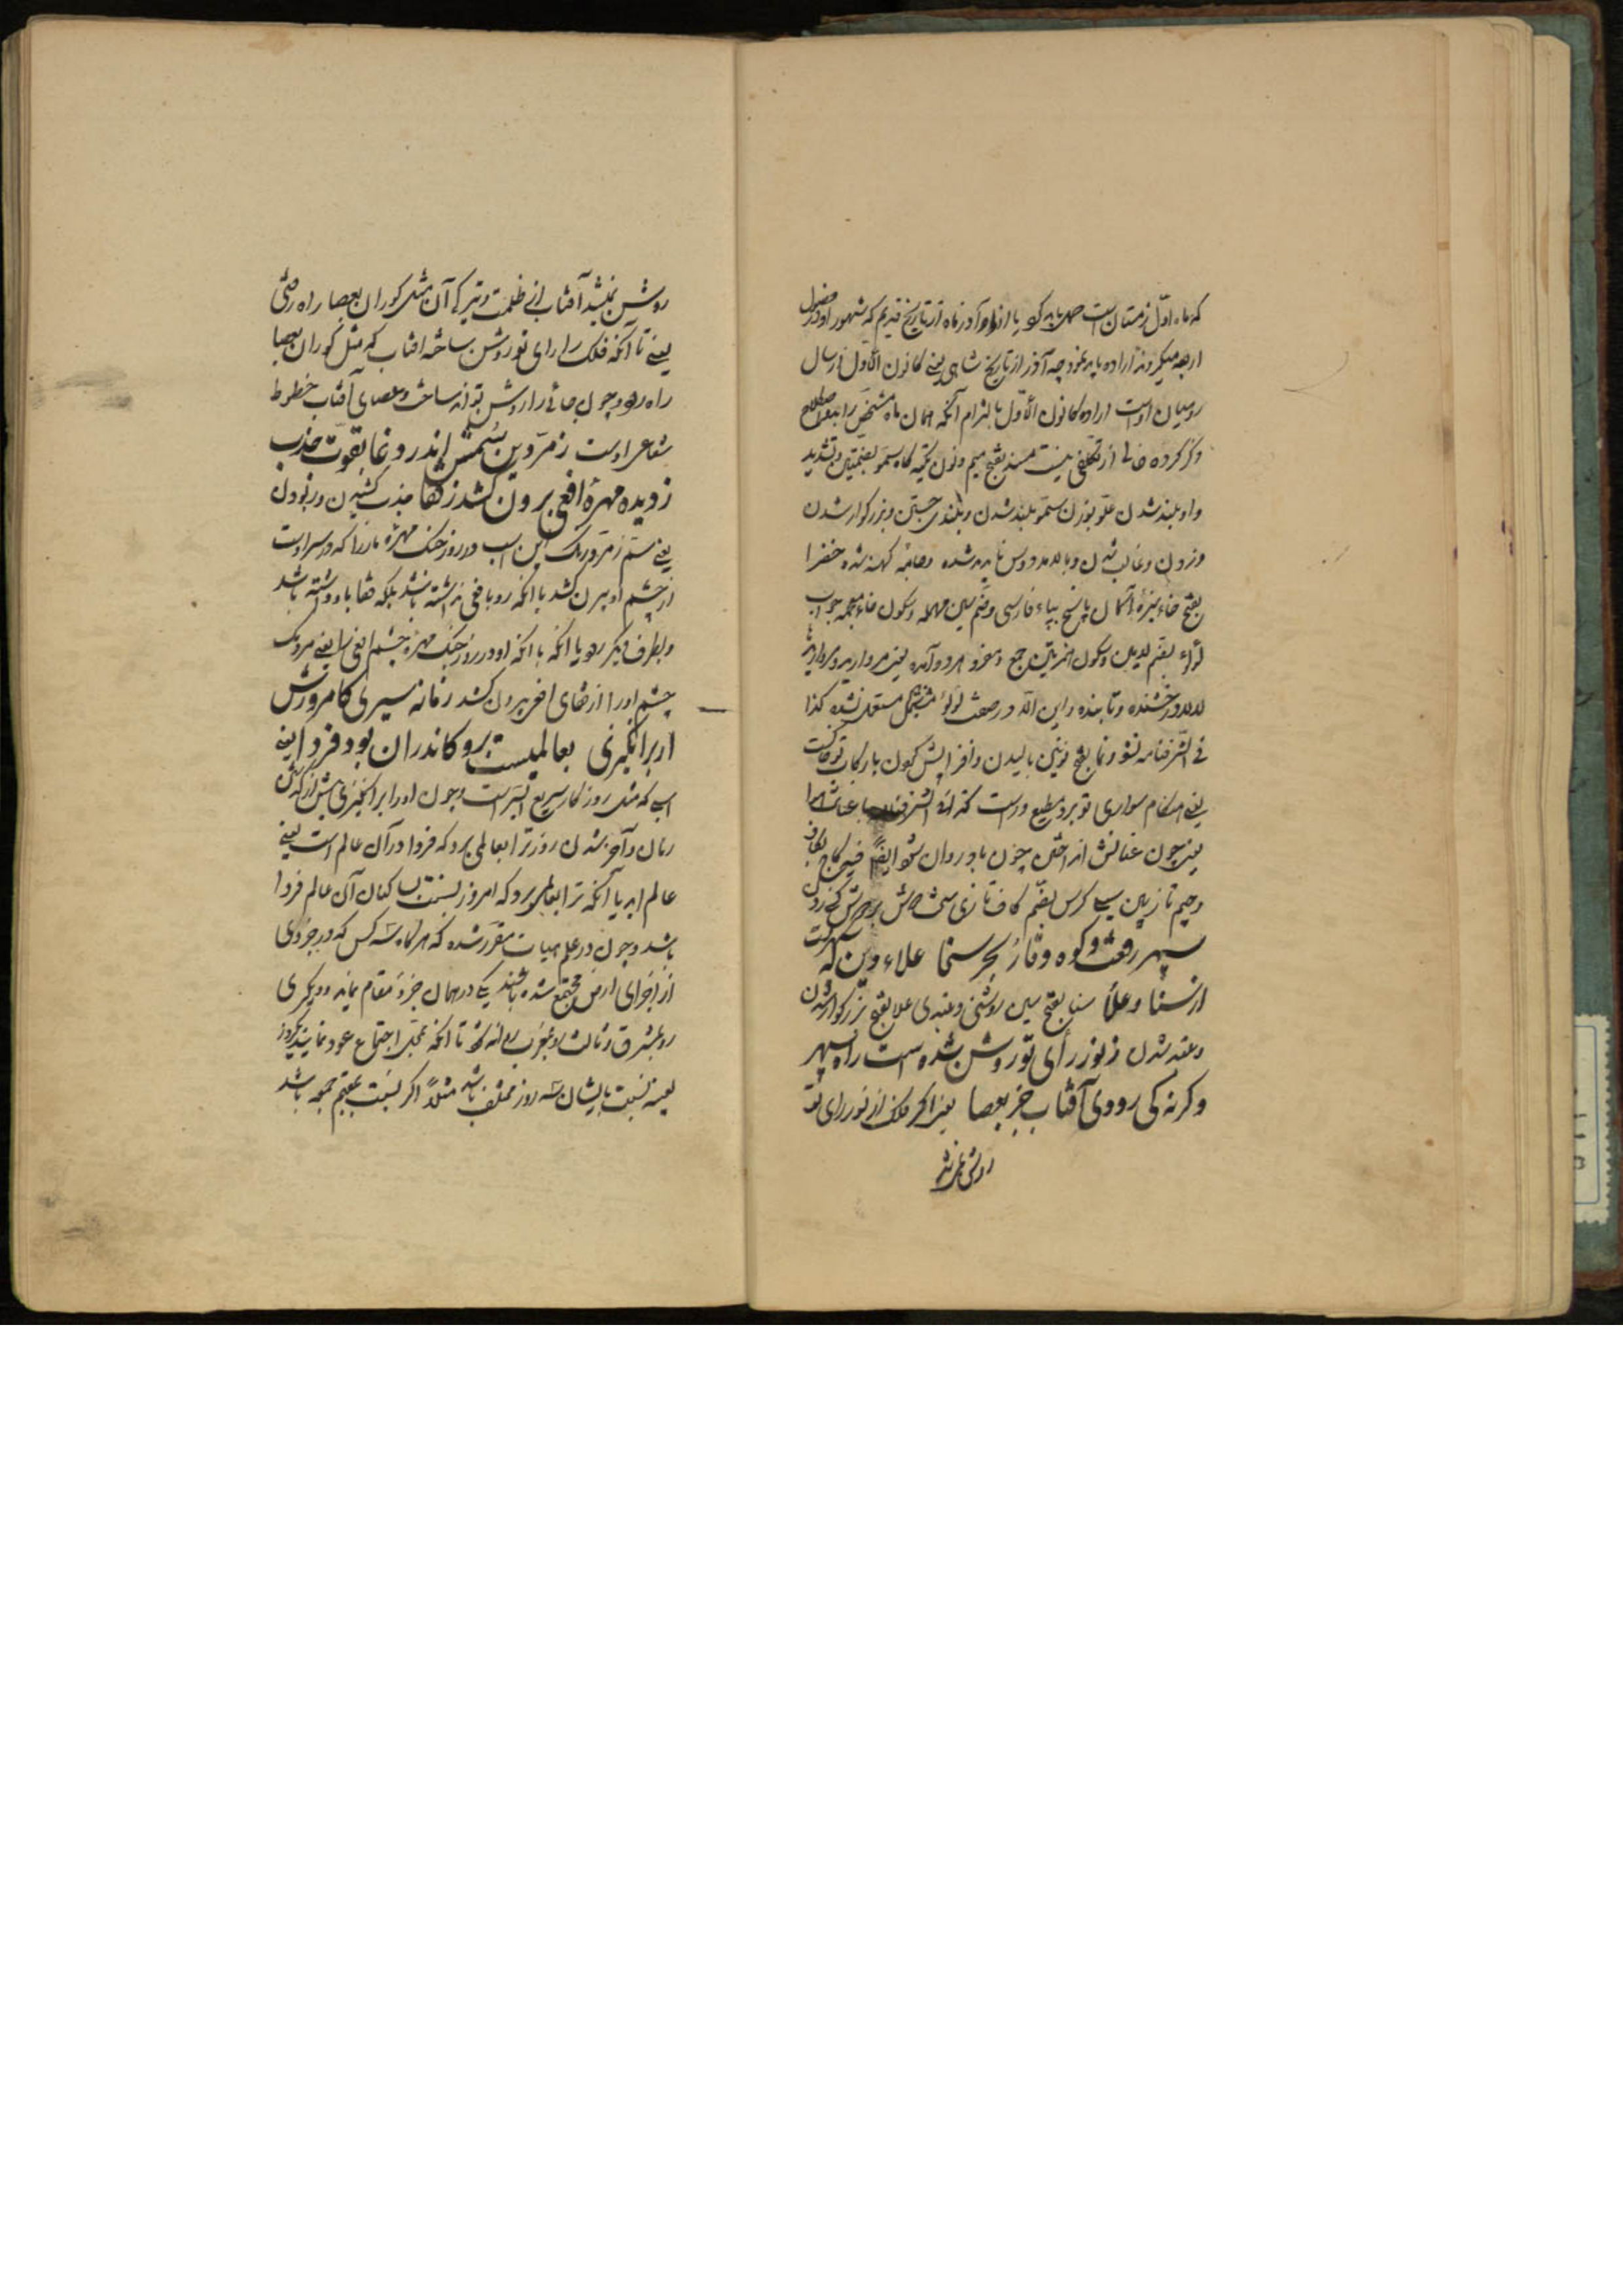 که ماه اول زمستان است حمل باید کرد یا از او آذر ماه از تاریخ قدیم که شهور او در فصول
اربعه میگردند اراده باید نمود چه آذر از تاریخ شاهی یعنی کانون الاول از سال
رومیان است اراده کانون الاول بالتزام آنکه همان ماه مشخص را باصطلاح
ذکر کرده خالی از تکلفی نیست مسند بفتح میم و نون تکیه گاه سمو بضمتین و تشدید
واو بلند شدن علو بوزن سمو بلند شدن و بلندی جستن و بزرگوار شدن
بفتح خاء سبزه آسمان پاسخ بباء فارسی و ضم سین مهمله و سکون خاء معجمه جواب
لؤلؤ بضم لامین و سکون همزتین جمع و مفرد هر دو آمده یعنی مروارید و مرواریدها
لالا درخشنده و تابنده و این الا در صفت لؤلؤ مستعمل نشده کذا
فی الشرفنامه نشو و نما بفتح نونین بالیدن و افزایش کون با رکاب تو خاکست
یعنی هنگام سواری تو بردو مطیع
یعنی چون عنانش اندازی چون باد روان شود
وجیم تازیین
سپهر رفعت و کوه وقار بحر سخا علاء دین که
از سنا و علا سنا بفتح سین روشنی و بلندی علا بفتح بزرگوار شدن
و بلند شدن ز نور رأی تو روشن شده است راه سپهر
و گرنه کی رودی آفتاب جز بعصا یعنی اگر فلک از نور رای تو
روشن نمیشد
روشن نمیشد آفتاب از ظلمت و تیرگی آن مثل کوران بعصا راه رفتی
یعنی تا آنکه فلک را رای تو روشن ساخته افتاب که مثل کوران بعصا
راه رود چون جائی را روشن تواند ساخت و عصای آفتاب خطوط
شعاعی اوست زمردین سمش اندر وغا بقوت جذب
ز دیده مهره افعی برون کشد ز قفا جذب کشیدن و ربودن
یعنی سم زمرد رنگ این اسب در روز جنگ مهره مار را که در سر اوست
از چشم او بیرون کشد با آنکه رو بافعی نداشته باشد بلکه قفا باو داشته باشد
و بطرف دیگر رود یا آنکه با آنکه او در روز جنگ مهره چشم افعی را یعنی مردمک
چشم او را از قفای افعی بیرون کشد زمانه سیری کامروزش
ار برانگیزی بعالمیست برو کاندران بود فردا یعنی
اسبی که مثل روزگار سریع السیر است و چون او را برانگیزی پیش از گذشتن
زمان و آخر شدن روز ترا بعالمی برد که فردا در آن عالم است یعنی
عالم ابد یا آنکه ترا بعالمی برد که امروز نسبت با کنان آن عالم فردا
باشد و چون در علم هیات مقرر شده که هرگاه سه کس که در جزوی
از اجزای ارض مجتمع شده باشند یکی در همان جزو مقام نماید و دیگری
رو بمشرق و ثالث رو بمغرب روانه شود تا آنکه بمحل اجتماع عود نمایند یکروز
بعینه نسبت بایشان سه روز مختلف باشد مثلاً اگر نسبت بمقیم جمعه باشد